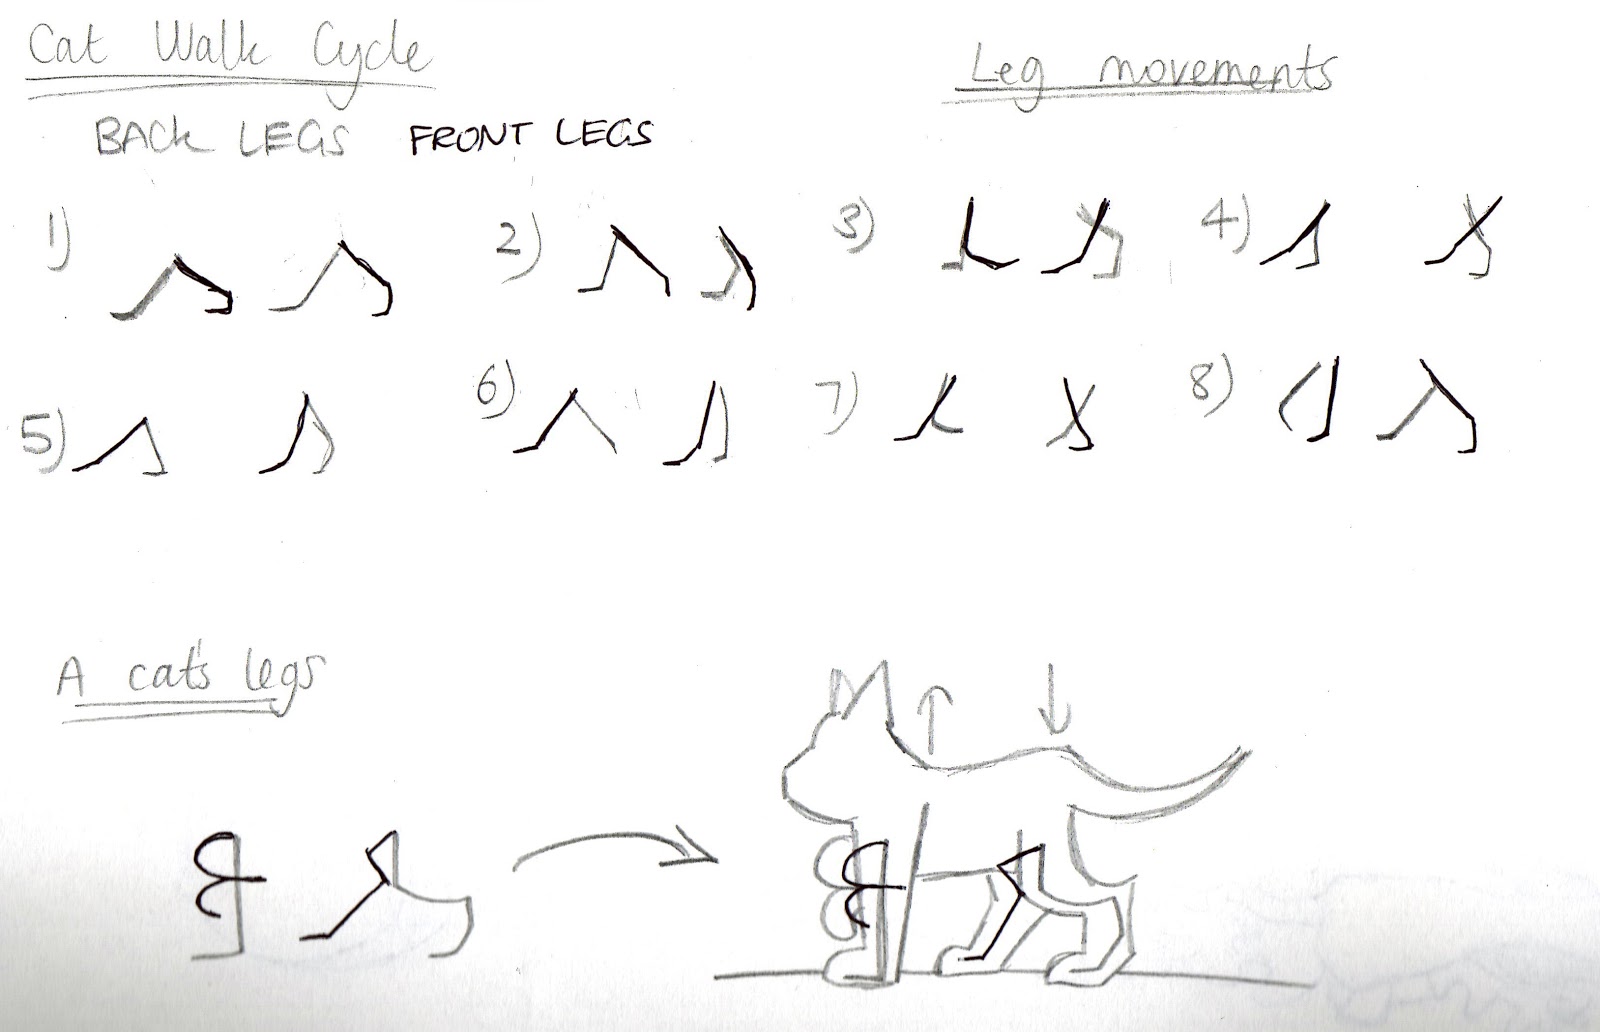 Cat Walk Cycle
Leg movements
BACK LEGS FRONT LEGS
1) 2) 3) 4)
5) 6) 7) 8)
A cat's legs